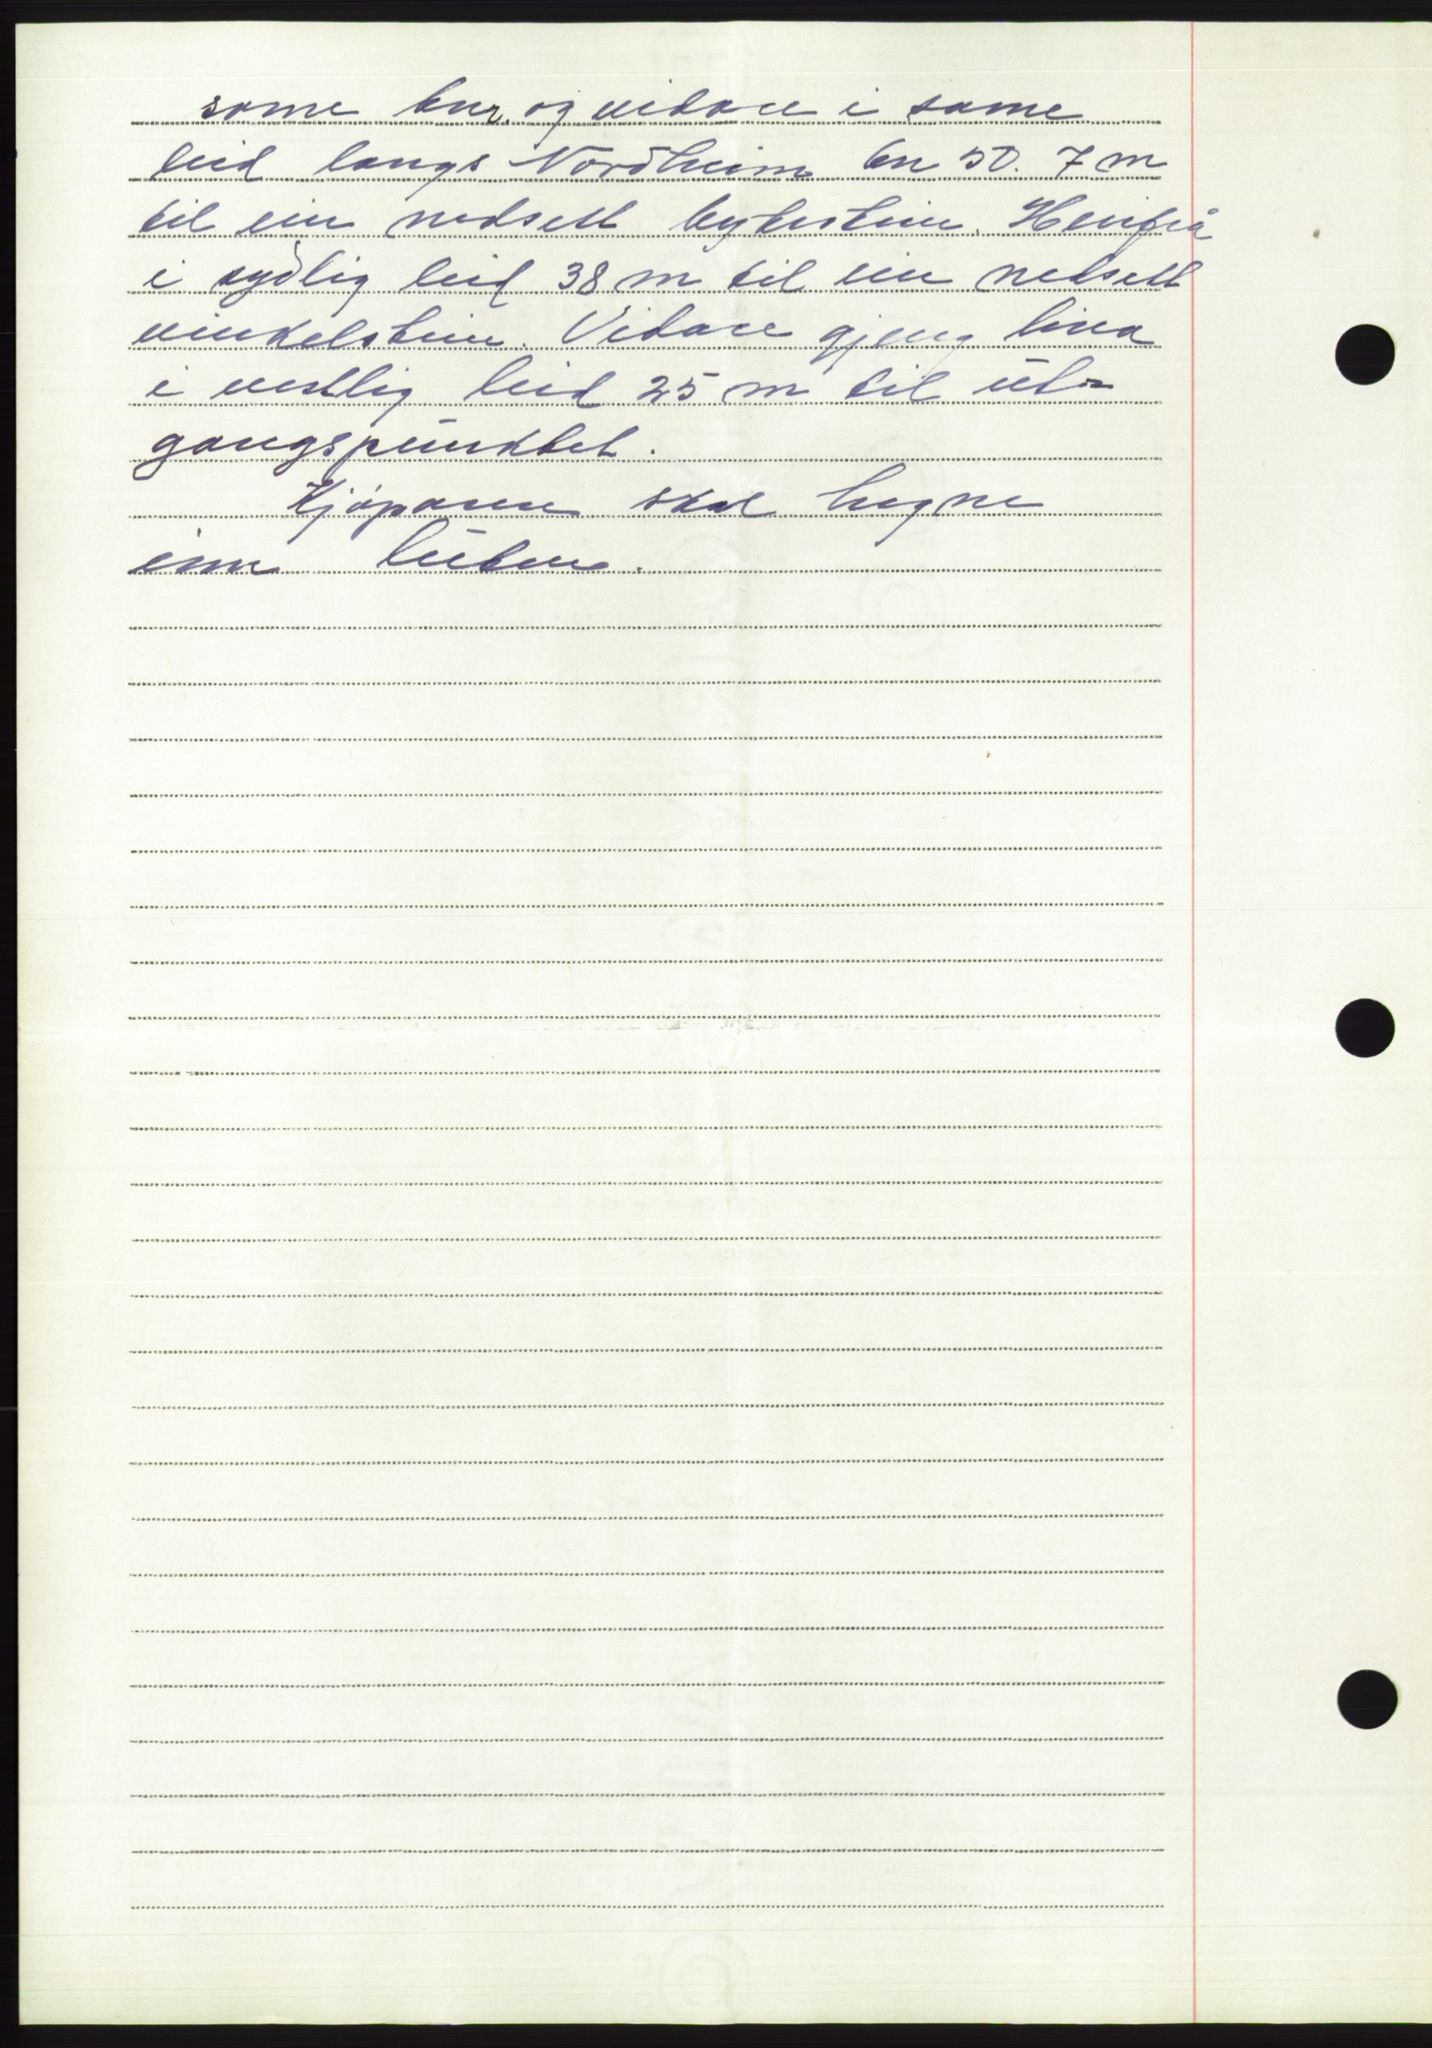 same bnr. og vidare i same
leid langs Nordheim bn 50. 7 m
til ein nedsett bytestein. Herifrå
i sydlig leid 38 m til ein nedsett
vinkelstein. Vidare gjeng lina
i vestlig leid 25 m til ut-
gangspunktet.
Kjøparen skal hegne
inn luten.